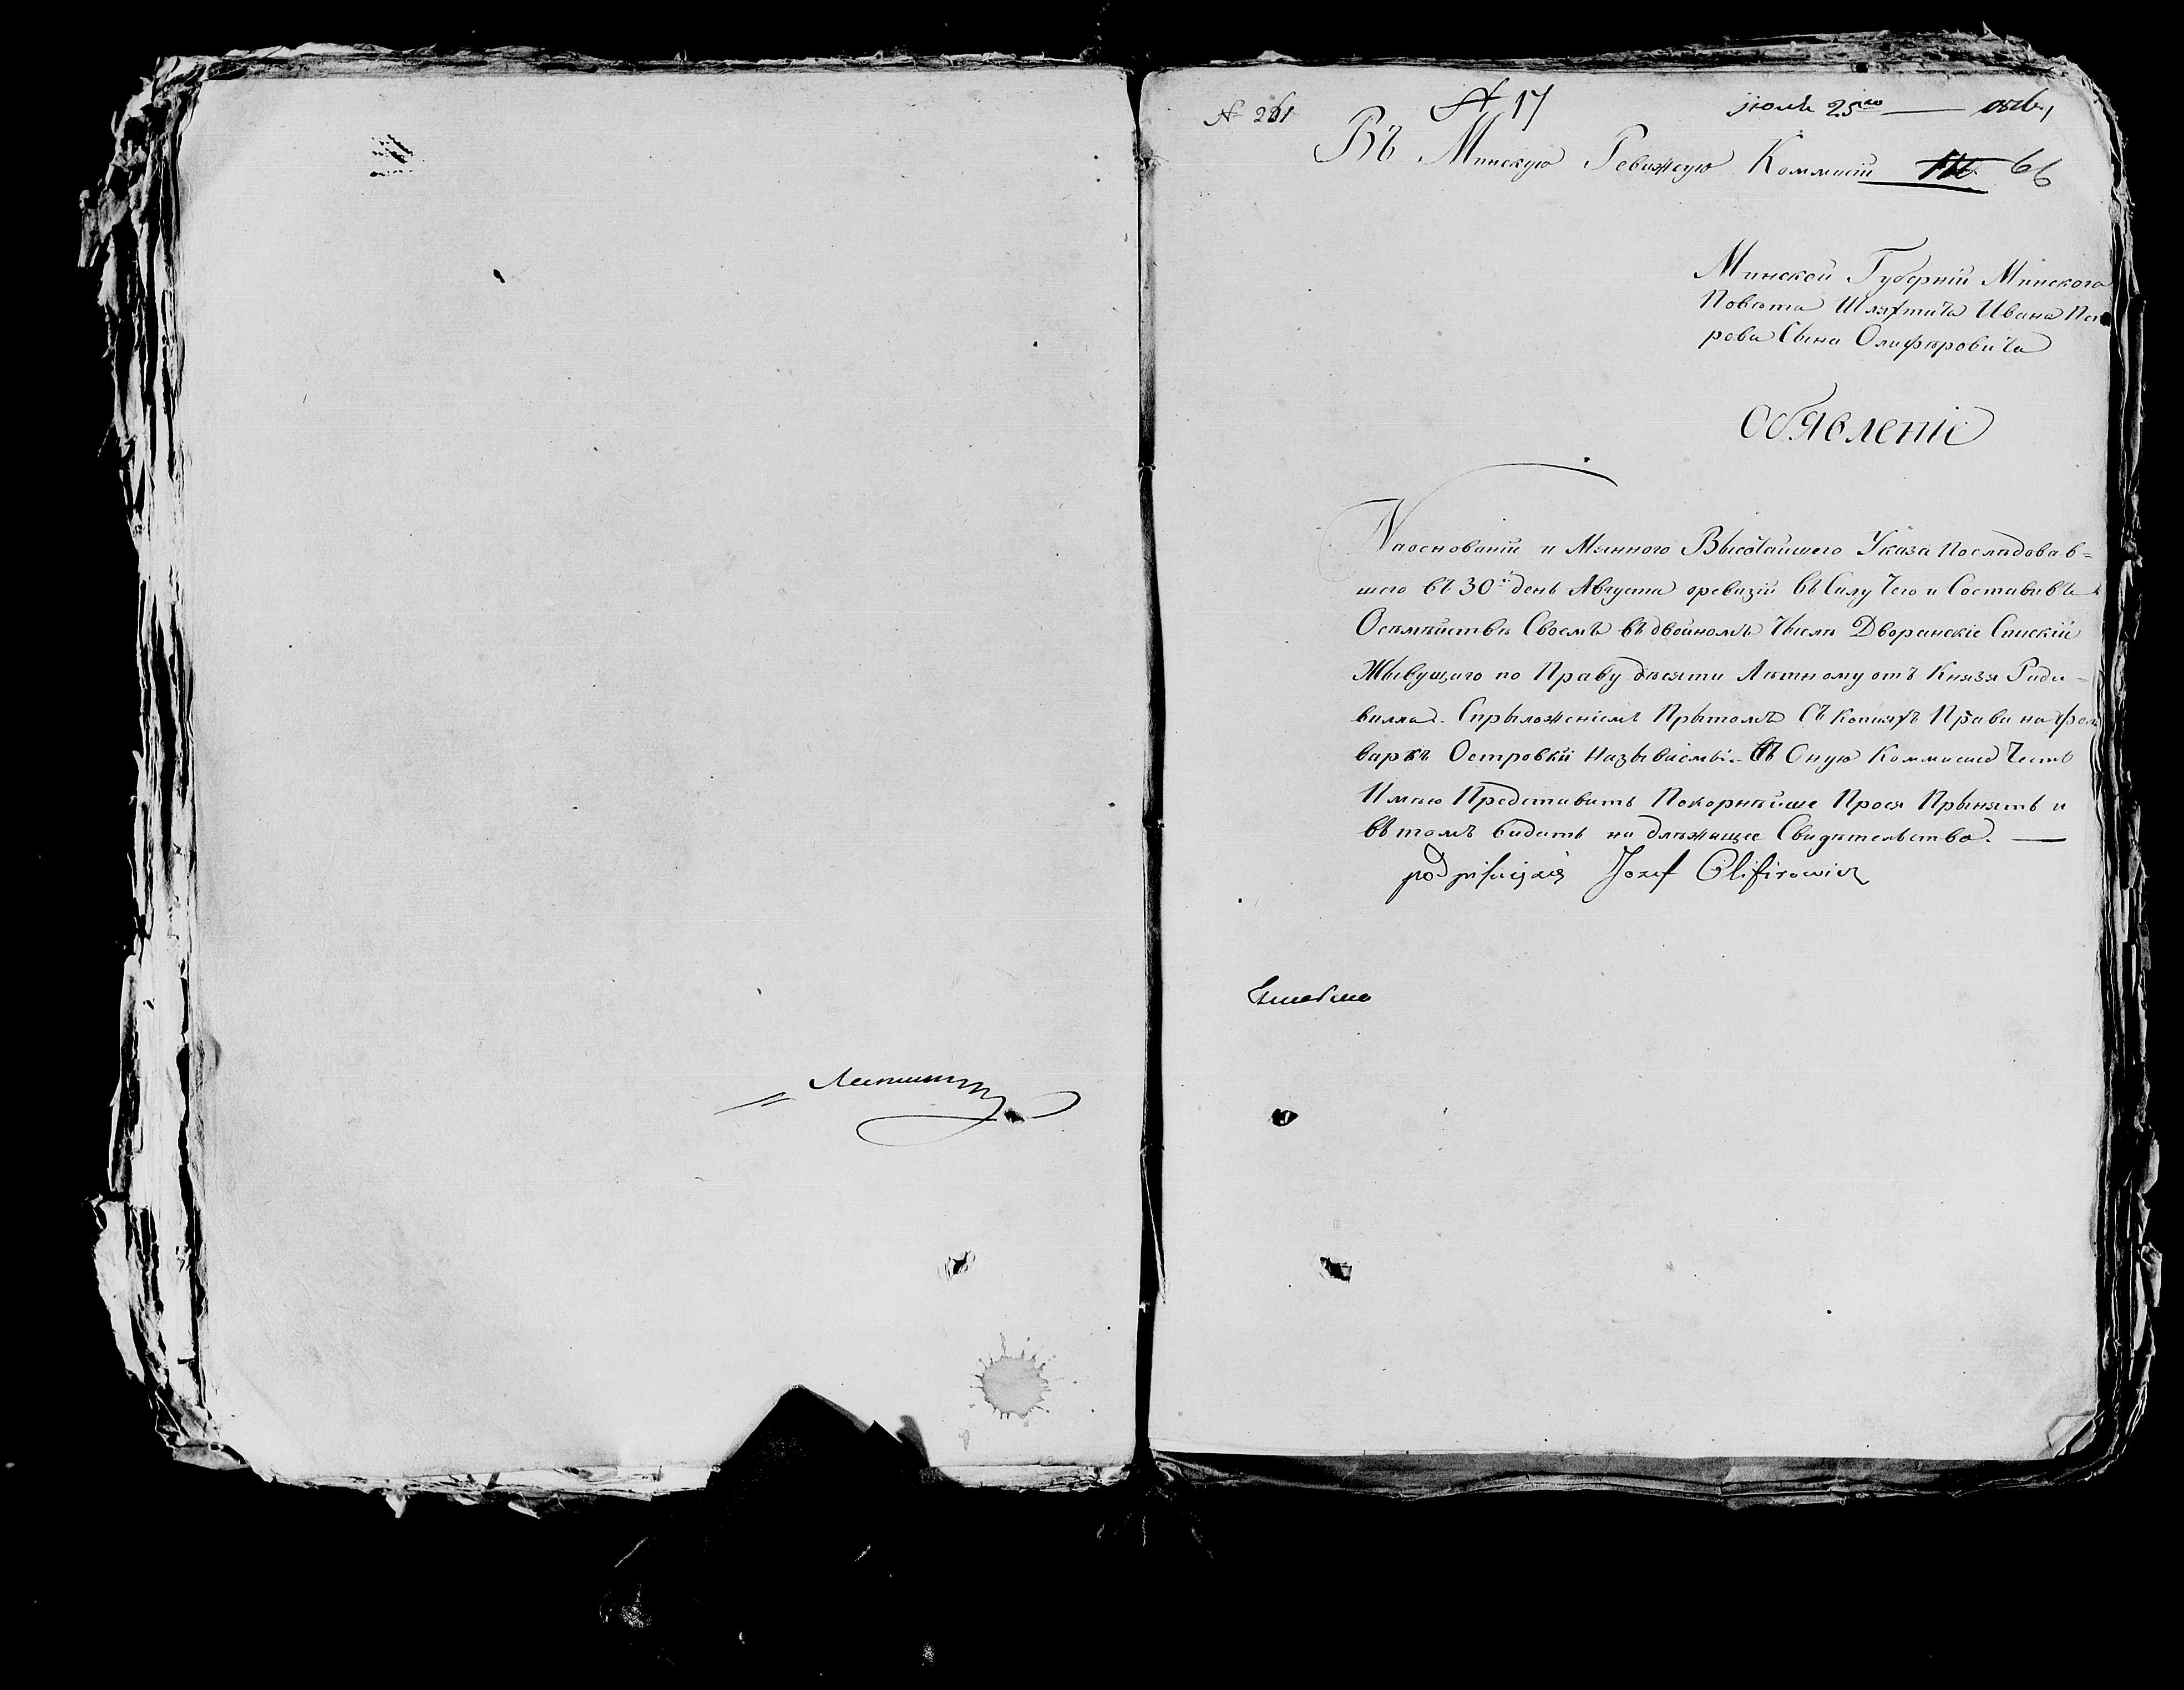 № 261 № 17 июля 25го
Въ Минскую Ревижскую Коммисій 66
Минской Губерніи Минского
Повѣта Шляхтича Ивана Пет
рова Сына Олифѣровича
Объявленіе
На основаніи и Мянного Высочайшего Указа Последовав=
шего въ 30й день Августа оревизіи въ Силу чего и Составивъ
Осѣмѣйствѣ Своемъ въ двойномъ Числѣ Дворанскіе Спискіи
Жывущаго по Праву десяти Лѣтному отъ Князя Ради-
вилла Спрыложеніемъ Прытомъ Съ копияхъ Права на фоль
варкъ Островкіи Называемы Въ Оную Коммисию Честь
Имѣю Представить Покорнѣйше Прося Прынять и
въ томъ видать на длѣжащее Свидѣтельство. —
Jozef Olifirowicz